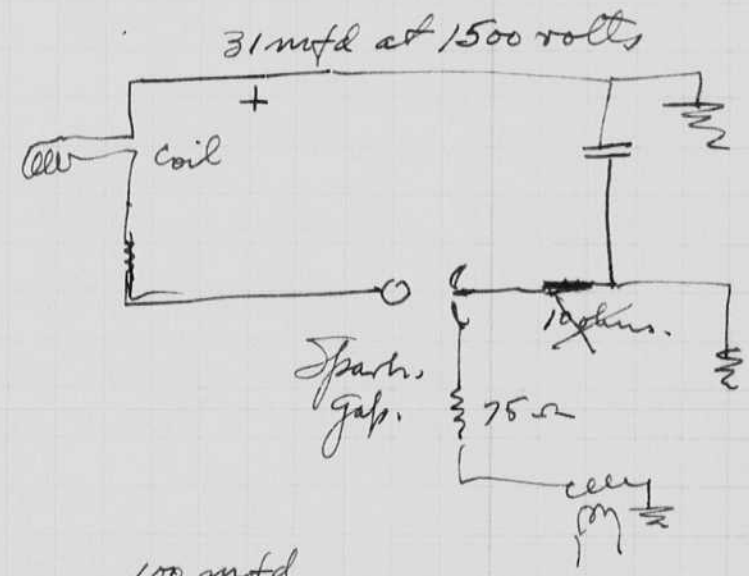 31 mfd at 1500 volts
+
Coil
10 ohms.
Spark
Gap.
75 Ω
100 mfd